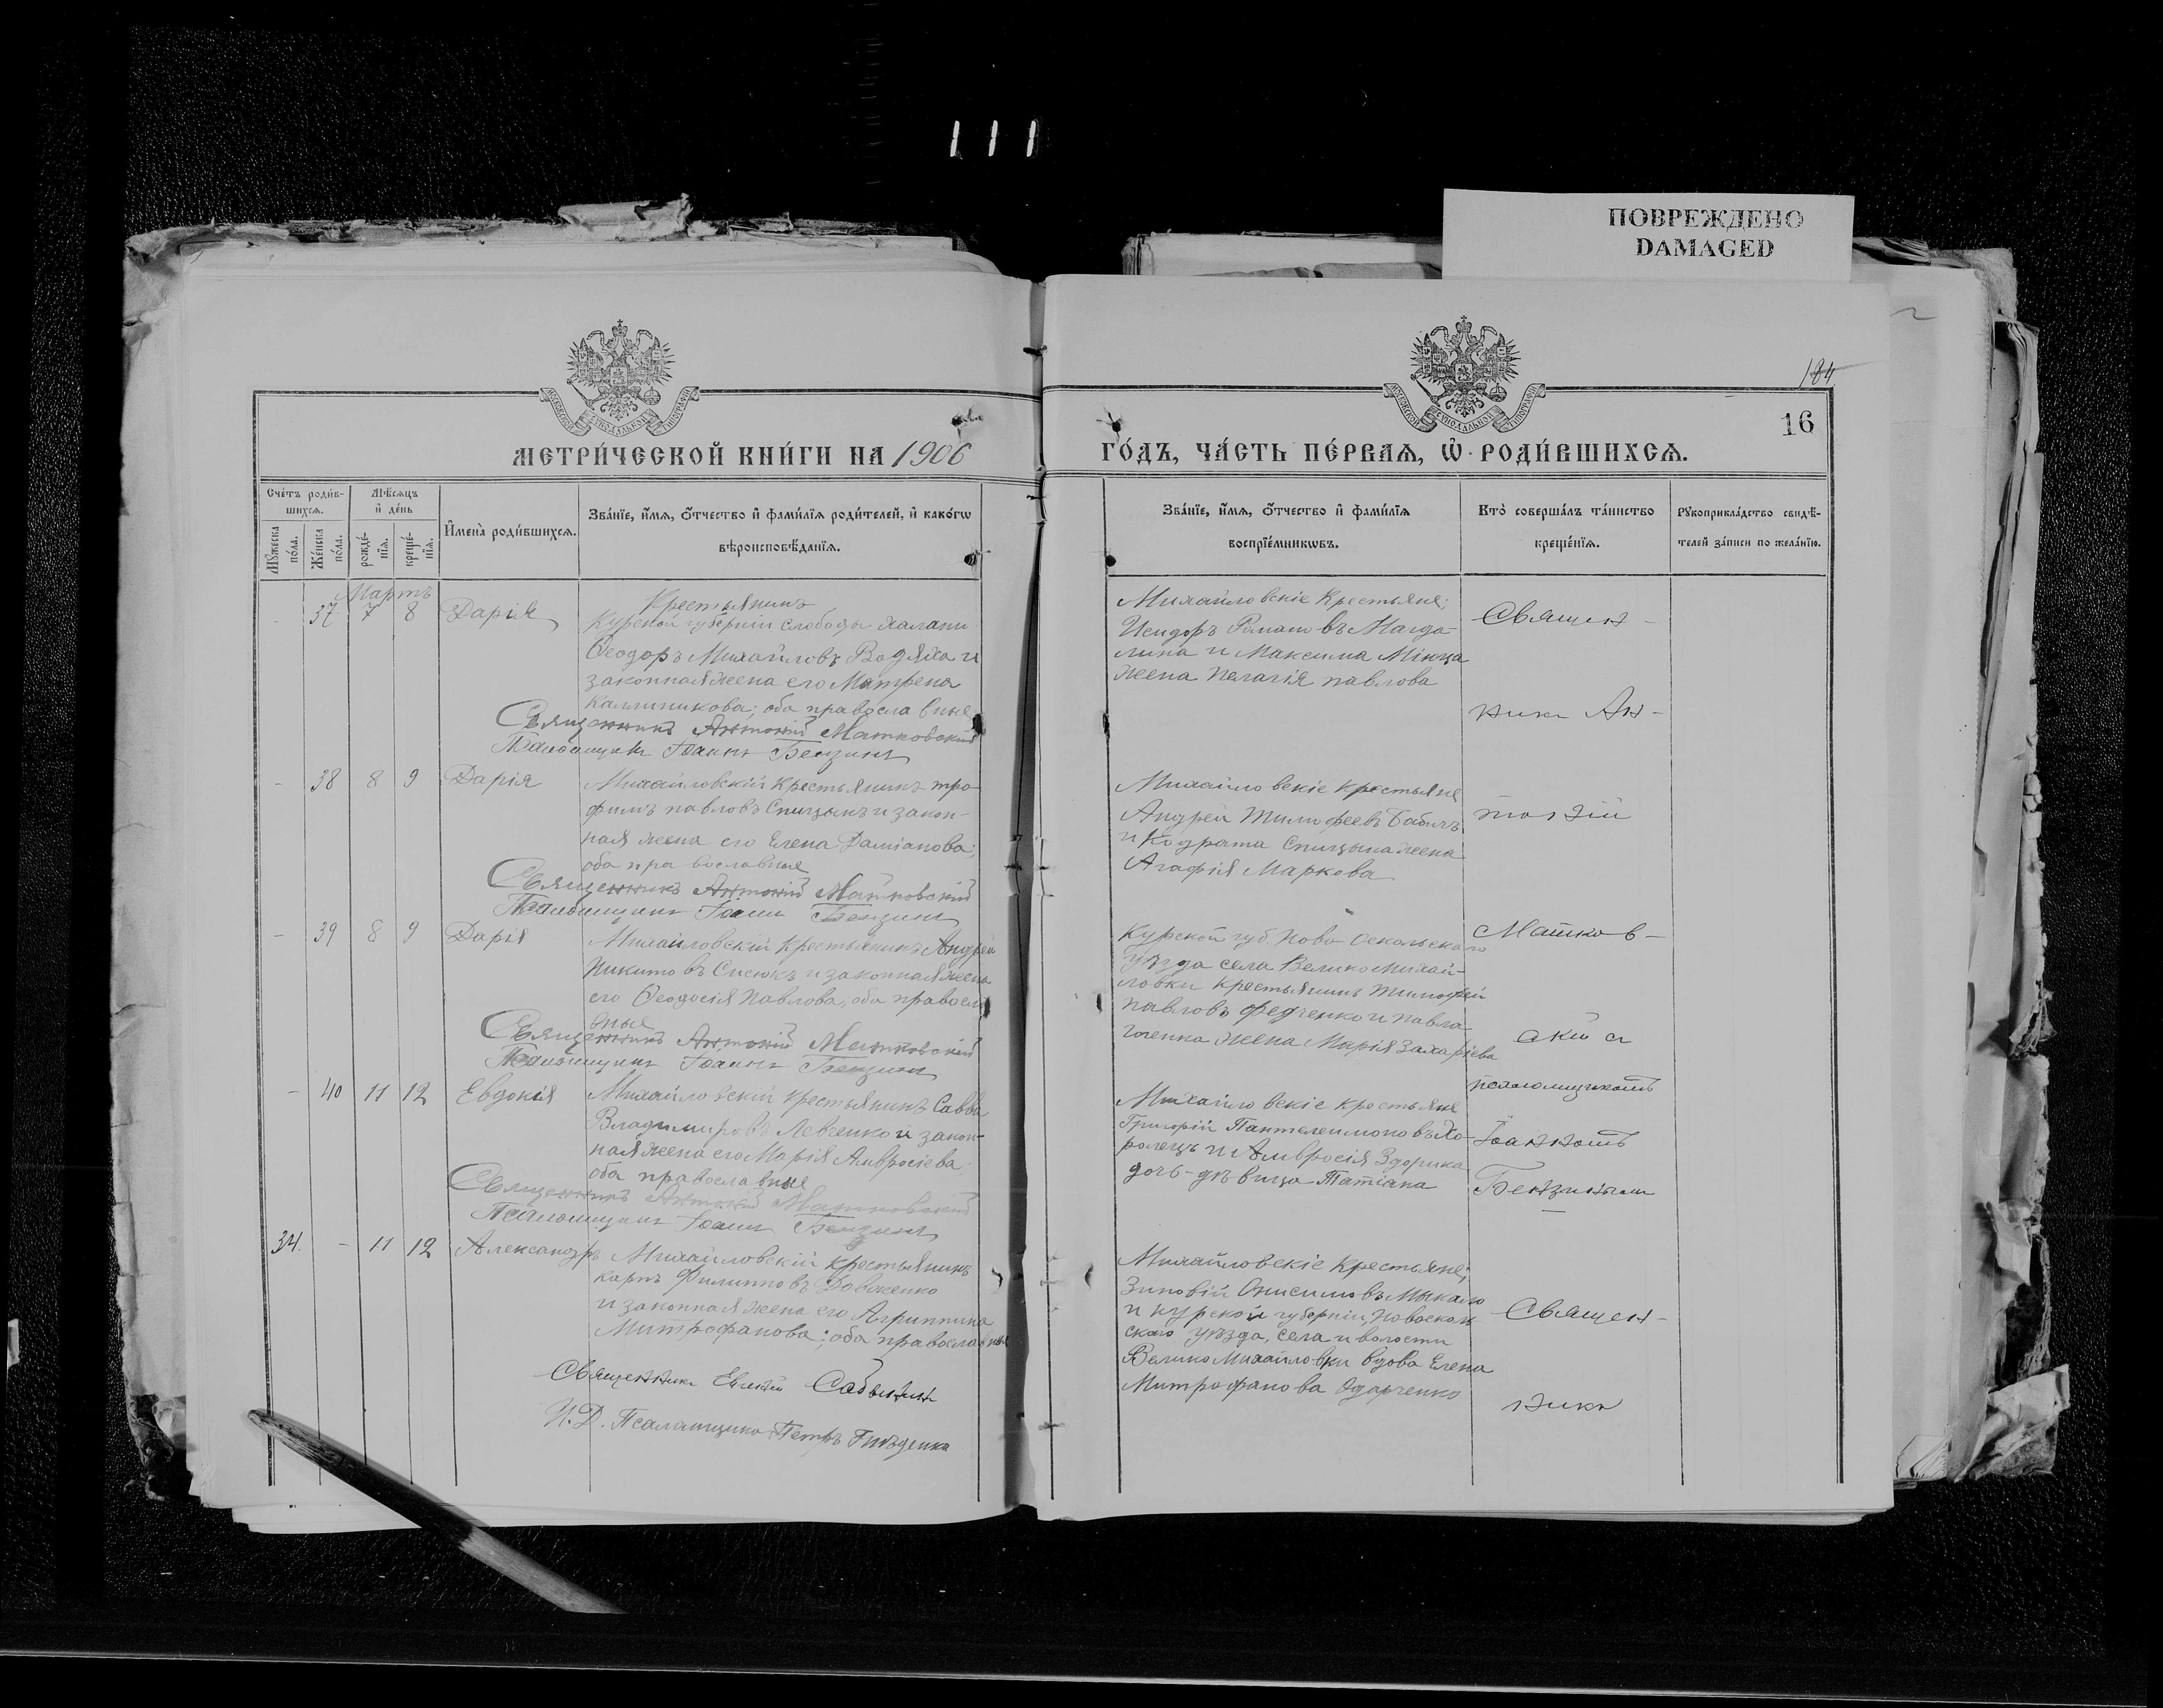 ПОВРЕЖДЕНО
DAMAGED
МОСКОВСКОЙ СѴНОДАЛЬНОЙ ТИПОГРАФІИ
МОСКОВСКОЙ СѴНОДАЛЬНОЙ ТИПОГРАФІИ
184
16
МЕТРИ́ЧЕСКОЙ КНИ́ГИ НА 1906
ГО́ДЪ, ЧА́СТЬ ПЕ́РВАѦ, Ѡ҆ РОДИ́ВШИХСѦ.
Сче́тъ роди́в-
шихсѧ.
Мꙋ́жеска по́ла.
Же́нска по́ла.
Мѣ́сѧцъ
и҆ де́нь
рожде́-
нїѧ.
креще́-
нїѧ.
И҆мена̀ роди́вшихсѧ.
Зва́нїе, и҆́мѧ, ѻ҆́тчество и҆ фами́лїѧ роди́телей, и҆ како́гѡ
вѣроисповѣ́данїѧ.
Зва́нїе, и҆́мѧ, ѻ҆́тчество и҆ фами́лїѧ
воспрїе́мникѡвъ.
Кто̀ соверша́лъ та́инство
креще́нїѧ.
Рꙋкоприкла́дство свидѣ́-
телей за́писи по жела́нїю.
Мартъ
37 7 8 Дарія
Крестьянинъ
Курской губерніи слободы Халани
Ѳеодоръ Михайловъ Водяха и
законная жена его Матрена
Каллиникова; оба православные
Священникъ Антоній Матковскій
Псаломщикъ Іоаннъ Бензинъ
Михайловскіе крестьяне;
Исидоръ Романовъ Магда-
лина и Максима
жена Пелагія Павлова
Священ-
никъ Ан-
- 38 8 9 Дарія
Михайловскій крестьянинъ Тро-
фимъ Павловъ Спицынъ и закон-
ная жена его Елена Даміанова;
оба православные
Священникъ Антоній Матковскій
Псаломщикъ Іоаннъ Бензинъ
Михайловскіе крестьяне
Андрей Тимофеевъ Бабичъ
и Кодрата Спицына жена
Агафія Маркова
тоній
- 39 8 9 Дарія
Михайловскій крестьянинъ Андрей
Никитовъ Сисюкъ и законная жена
его Ѳеодосія Павлова, оба правосла
вные
Священникъ Антоній Матковскій
Псаломщикъ Іоаннъ Бензинъ
Курской губ. Ново Оскольскаго
уѣзда села Велико Михай-
ловки крестьянинъ Тимофей
Павловъ Федченко и Павла
жена Марія Захаріева
Матков-
скій съ
псаломщикомъ
- 40 11 12 Евдокія
Михайловскій крестьянинъ Савва
Владимировъ Левченко и закон-
ная жена его Марія Амвросіева;
оба православные
Священникъ Антоній Матковскій
Псаломщикъ Іоаннъ Бензинъ
Михайловскіе крестьяне
Григорій Пантелеимоновъ Хо-
ролецъ и Амвросія Здорика
дочь-дѣвица Татіана
Іоанномъ
Бензинымъ
34. - 11 12 Александръ
Михайловскій крестьянинъ
Карпъ Филипповъ Довженко
и законная жена его Агриппина
Митрофанова; оба православные
Священникъ Савынинъ
И. Д. Псаломщика Петръ Гнѣденко
Михайловскіе крестьяне;
Зиновій Онисимовъ Мыкало
и Курской губерніи, Новоосколь
скаго уѣзда, села и волости
Велико Михайловки вдова Елена
Митрофанова Одарченко
Священ-
никъ